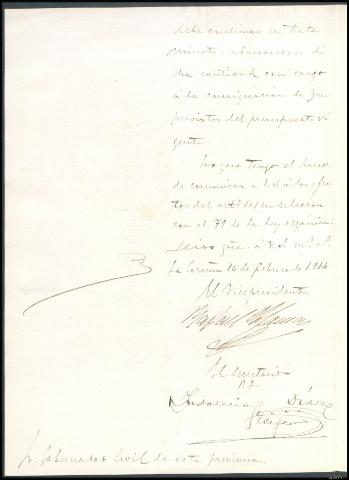 debe continuar en trata
miento, abonandose di
cha cantidad con cargo
á la consignacion de Im
previstos del presupuesto vi
gente.
Lo que tengo el honor
de comunicar á V.S. á los efec
tos del artº 101 en relacion
con el 79 de la ley organica.
Dios gue. á V.S. m.s a.s
La Coruña 16 de febrero de 1914
El Vicepresidente
Rafael
El Secretario
P. I.
Indalecio Diaz
Teijeiro
Sr. Gobernador Civil de esta provincia.